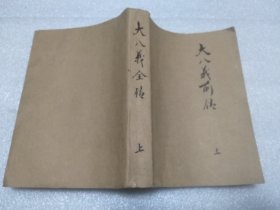 大八義全傳
上
大八義前傳
上